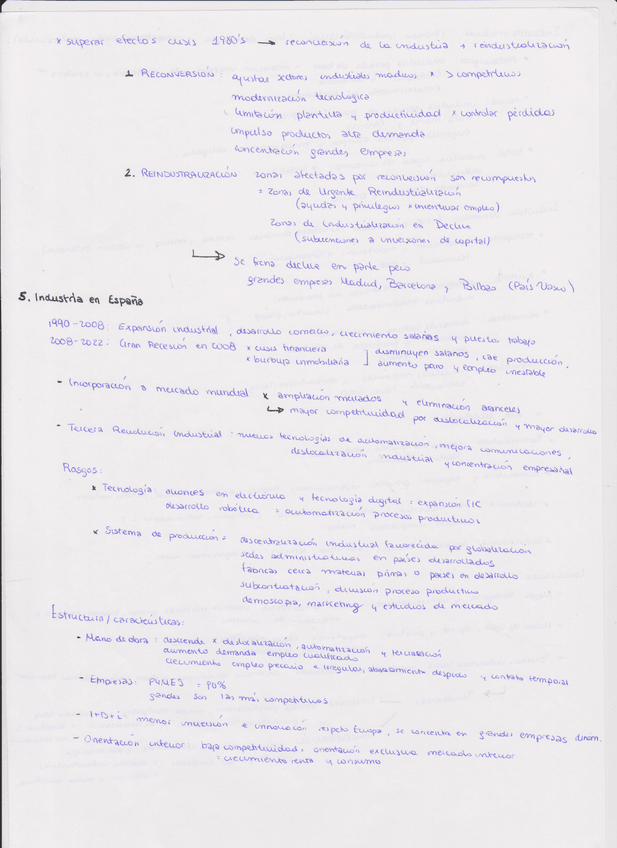 x superar efectos crisis 1980's → reconversión de la industria + reindustrialización
1. RECONVERSIÓN: ajustar sectores industriales maduros x > competitivos
modernización tecnológica
limitación plantilla y productividad x controlar pérdidas
impulso productos alta demanda
concentración grandes empresas
2. REINDUSTRIALIZACIÓN zonas afectadas por reconversión son recompuestas
= Zonas de Urgente Reindustrialización
(ayudas y privilegios x incentivar empleo)
Zonas de Industrialización en Declive
(subvenciones a inversiones de capital)
↳ Se frena declive en parte pero
grandes empresas Madrid, Barcelona y Bilbao (País Vasco)
5. Industria en España
1990-2008: Expansión industrial, desarrollo comercio, crecimiento salarios y puestos trabajo
2008-2022: Gran Recesión en 2008 x crisis financiera
x burbuja inmobiliaria ] disminuyen salarios, cae producción,
aumento paro y empleo inestable
- Incorporación a mercado mundial x ampliación mercados y eliminación aranceles
↳ mayor competitividad por deslocalización y mayor desarrollo
- Tercera Revolución Industrial: nuevas tecnologías de automatización, mejora comunicaciones,
deslocalización industrial y concentración empresarial
Rasgos:
x Tecnología: avances en electrónica y tecnología digital = expansión TIC
desarrollo robótica = automatización procesos productivos
x Sistema de producción = descentralización industrial favorecida por globalización
sedes administrativas en países desarrollados
fábricas cerca materias primas o países en desarrollo
subcontratación, división proceso productivo
demoscopia, marketing y estudios de mercado
Estructura/características:
- Mano de obra: desciende x deslocalización, automatización y terciarización
aumento demanda empleo cualificado
crecimiento empleo precario e irregular, abaratamiento despido y contrato temporal
- Empresas: PYMES = 90%
grandes son las más competitivas
- I+D+i: menor inversión e innovación respeto Europa, se concentra en grandes empresas dinam.
- Orientación interior: baja competitividad, orientación exclusiva mercado interior
= crecimiento renta y consumo